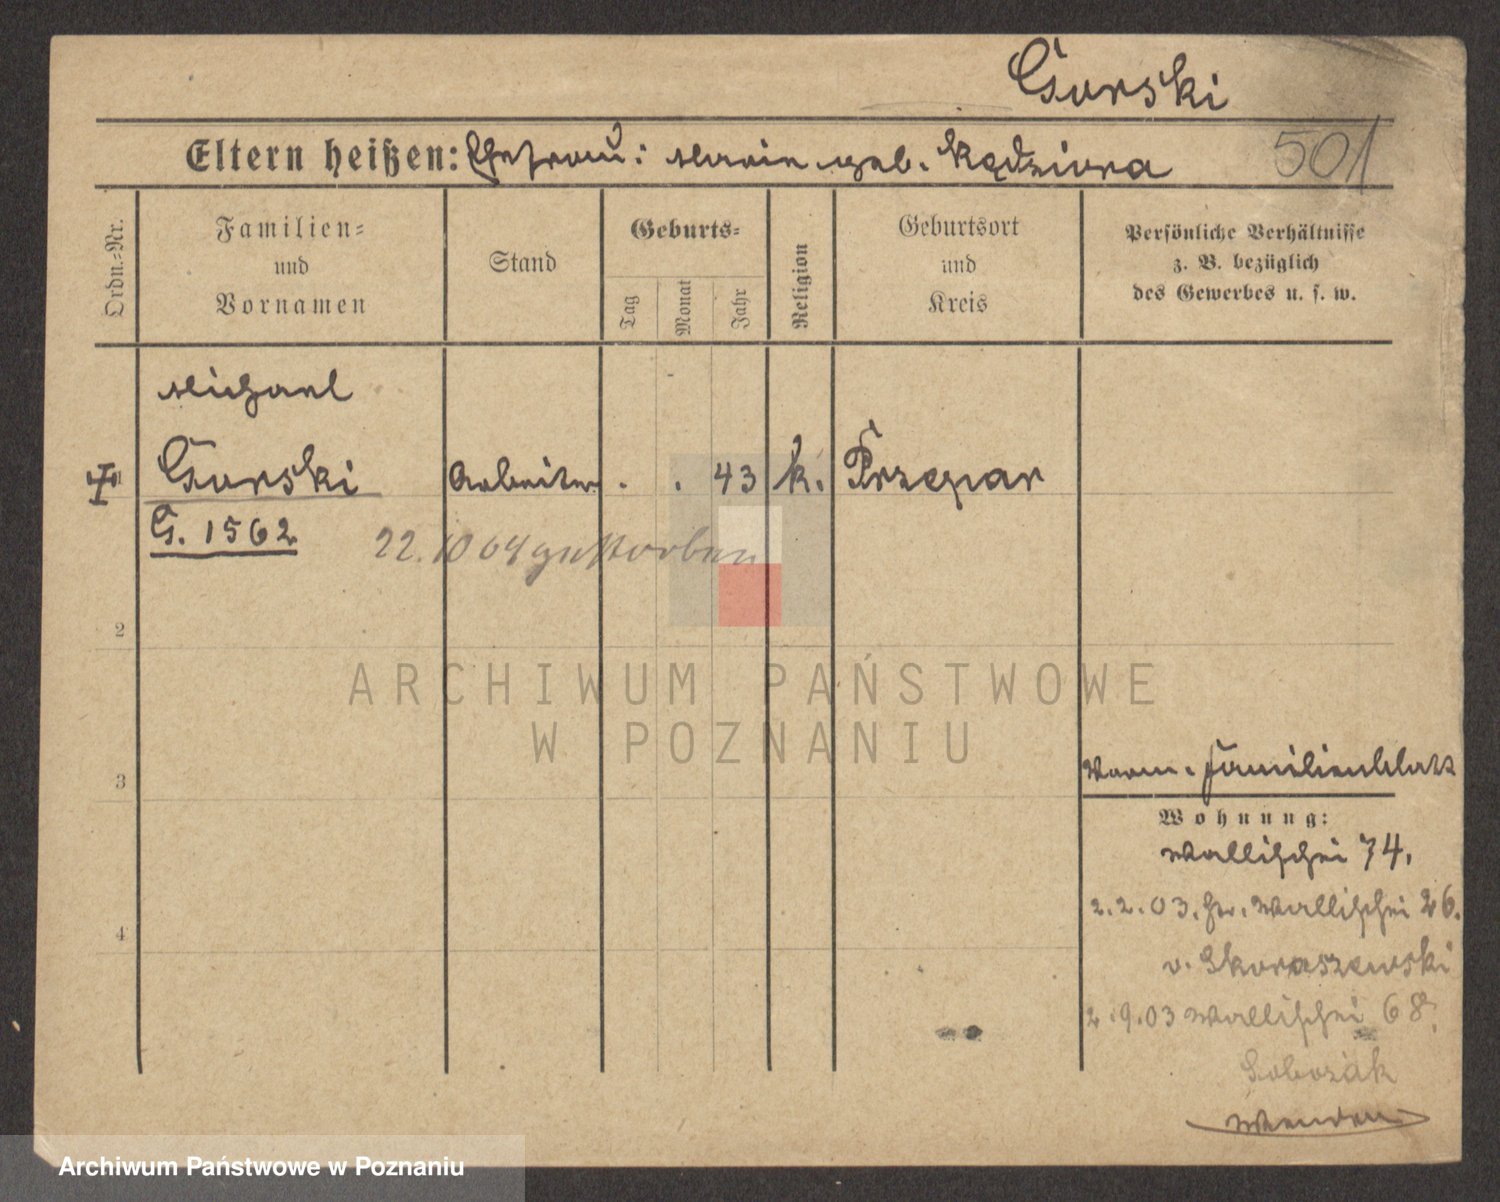 Gorski
Eltern heißen: Ehefrau: Marie geb. Kędziora
501
Ordn.-Nr.
Familien- und Vornamen
Stand
Geburts-
Tag
Monat
Jahr
Religion
Geburtsort und Kreis
Persönliche Verhältnisse
z. B. bezüglich
des Gewerbes u. s. w.
Michael
Gorski Arbeiter . . 43 k.
G. 1562
22.10 04 gestorben
2
3
4
ARCHIWUM PAŃSTWOWE
W POZNANIU
Familienblatt
Wohnung:
Wallischei 74.
2.2.03. Wallischei 26.
v. Skoraszewski
2.9.03 Wallischei 68
Wenden
Archiwum Państwowe w Poznaniu